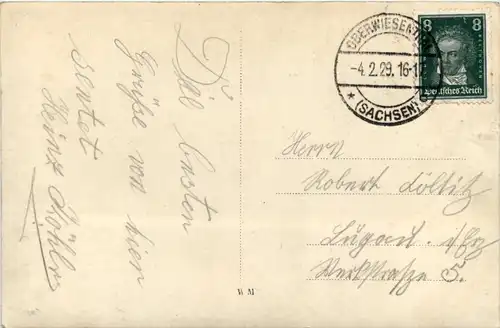 Die besten
Grüße von hier
sendet
Heinz Köhler
OBERWIESENTHAL
-4.2.29.16-1
* (SACHSEN)
8 8
Deutsches Reich
Herrn
Robert Döltitz
Lugau i/Erz
Werkstraße 5.
W M